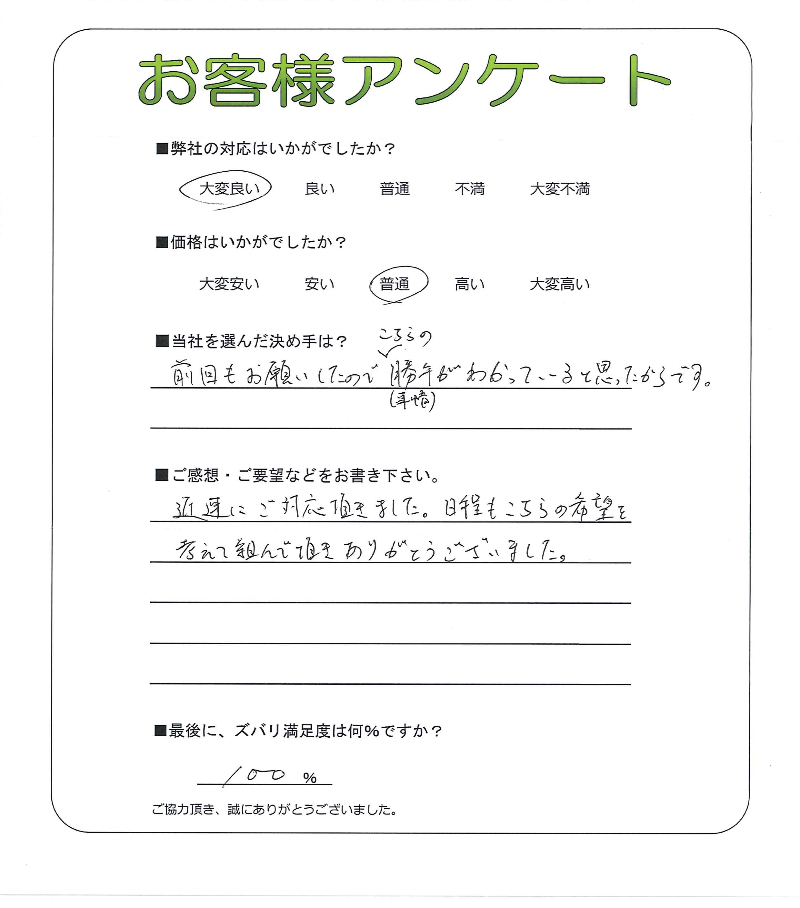 お客様アンケート
■弊社の対応はいかがでしたか？
大変良い 良い 普通 不満 大変不満
■価格はいかがでしたか？
大変安い 安い 普通 高い 大変高い
■当社を選んだ決め手は？
こちらの
前回もお願いしたので勝手がわかっていると思ったからです。
(事情)
■ご感想・ご要望などをお書き下さい。
迅速にご対応頂きました。日程もこちらの希望を
考えて組んで頂きありがとうございました。
■最後に、ズバリ満足度は何%ですか？
100 %
ご協力頂き、誠にありがとうございました。